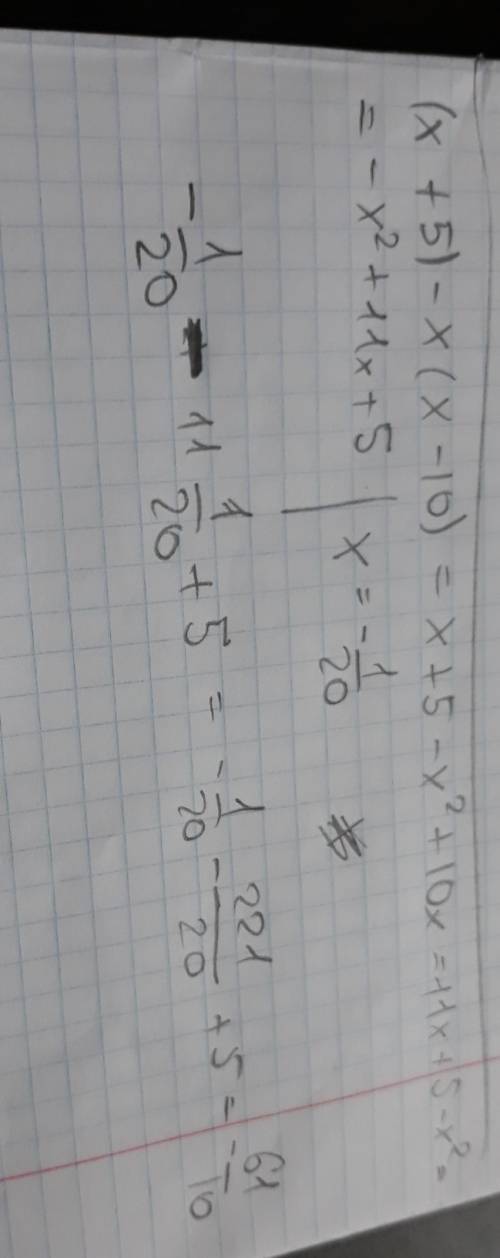 (x + 5) - x (x - 10) = x + 5 - x² + 10x = 11x + 5 - x² =
= - x² + 11x + 5 | x = - 1/20
- 1/20 - 11 1/20 + 5 = - 1/20 - 221/20 + 5 = - 61/10